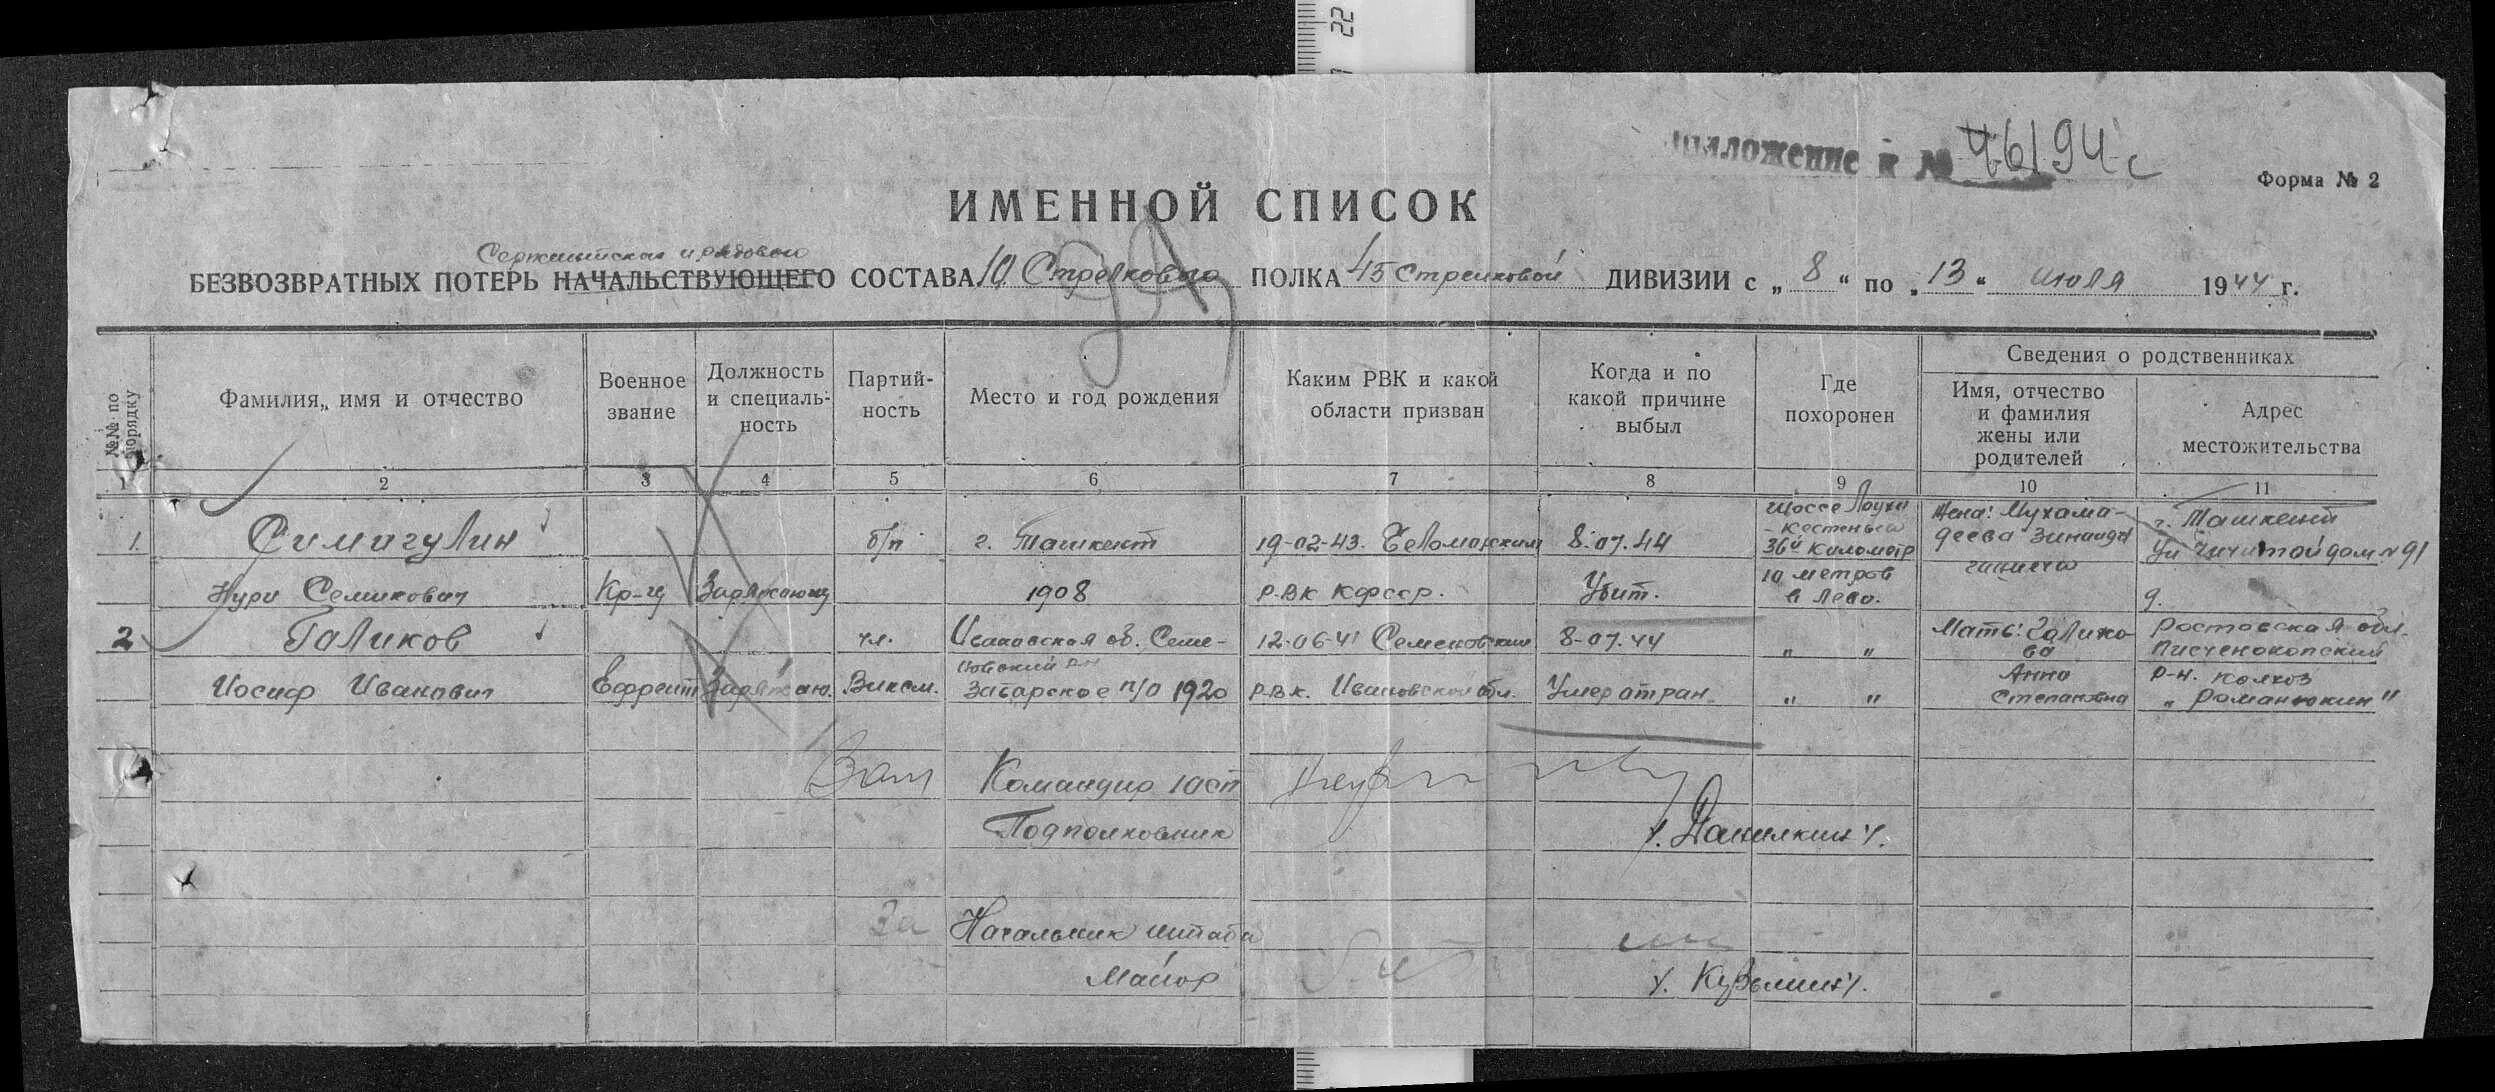 22
приложение к № 46194с
Форма № 2
ИМЕННОЙ СПИСОК
Сержантского и рядового
БЕЗВОЗВРАТНЫХ ПОТЕРЬ НАЧАЛЬСТВУЮЩЕГО СОСТАВА 10 Стрелкового ПОЛКА 45 Стрелковой ДИВИЗИИ с „ 8 “ по „ 13 “ июля 1944 г.
№№ по порядку
Фамилия, имя и отчество
Военное звание
Должность и специальность
Партийность
Место и год рождения
Каким РВК и какой области призван
Когда и по какой причине выбыл
Где похоронен
Сведения о родственниках
Имя, отчество и фамилия жены или родителей
Адрес местожительства
1 2 3 4 5 6 7 8 9 10 11
1. Симигулин б/п г. Ташкент 19-02-43. Беломорским 8.07.44 шоссе Лоухи - Кестеньга 36й километр Жена: Мухамадеева Зинаида г. Ташкент ул дом № 91
Нури Семикович Кр-ец Заряжающ 1908 Р.В.К КФССР. Убит. 10 метров влево.
2 Галиков чл. Ивановская об. Семе- 12-06-41 Семеновским 8-07.44 " " Мать: Галикова Ростовская обл. Писченокопский
Иосиф Иванович Ефрейт Заряжаю. Влксм. новский рн Забарское п/о 1920 Р.В.К. Ивановской обл. Умер от ран. " " Анна Степановна р-н. колхоз „Романюкин"
Зам Командир 10 сп
Подполковник /. Данилкин /.
За Начальник штаба
Майор /. Кузьмин /.